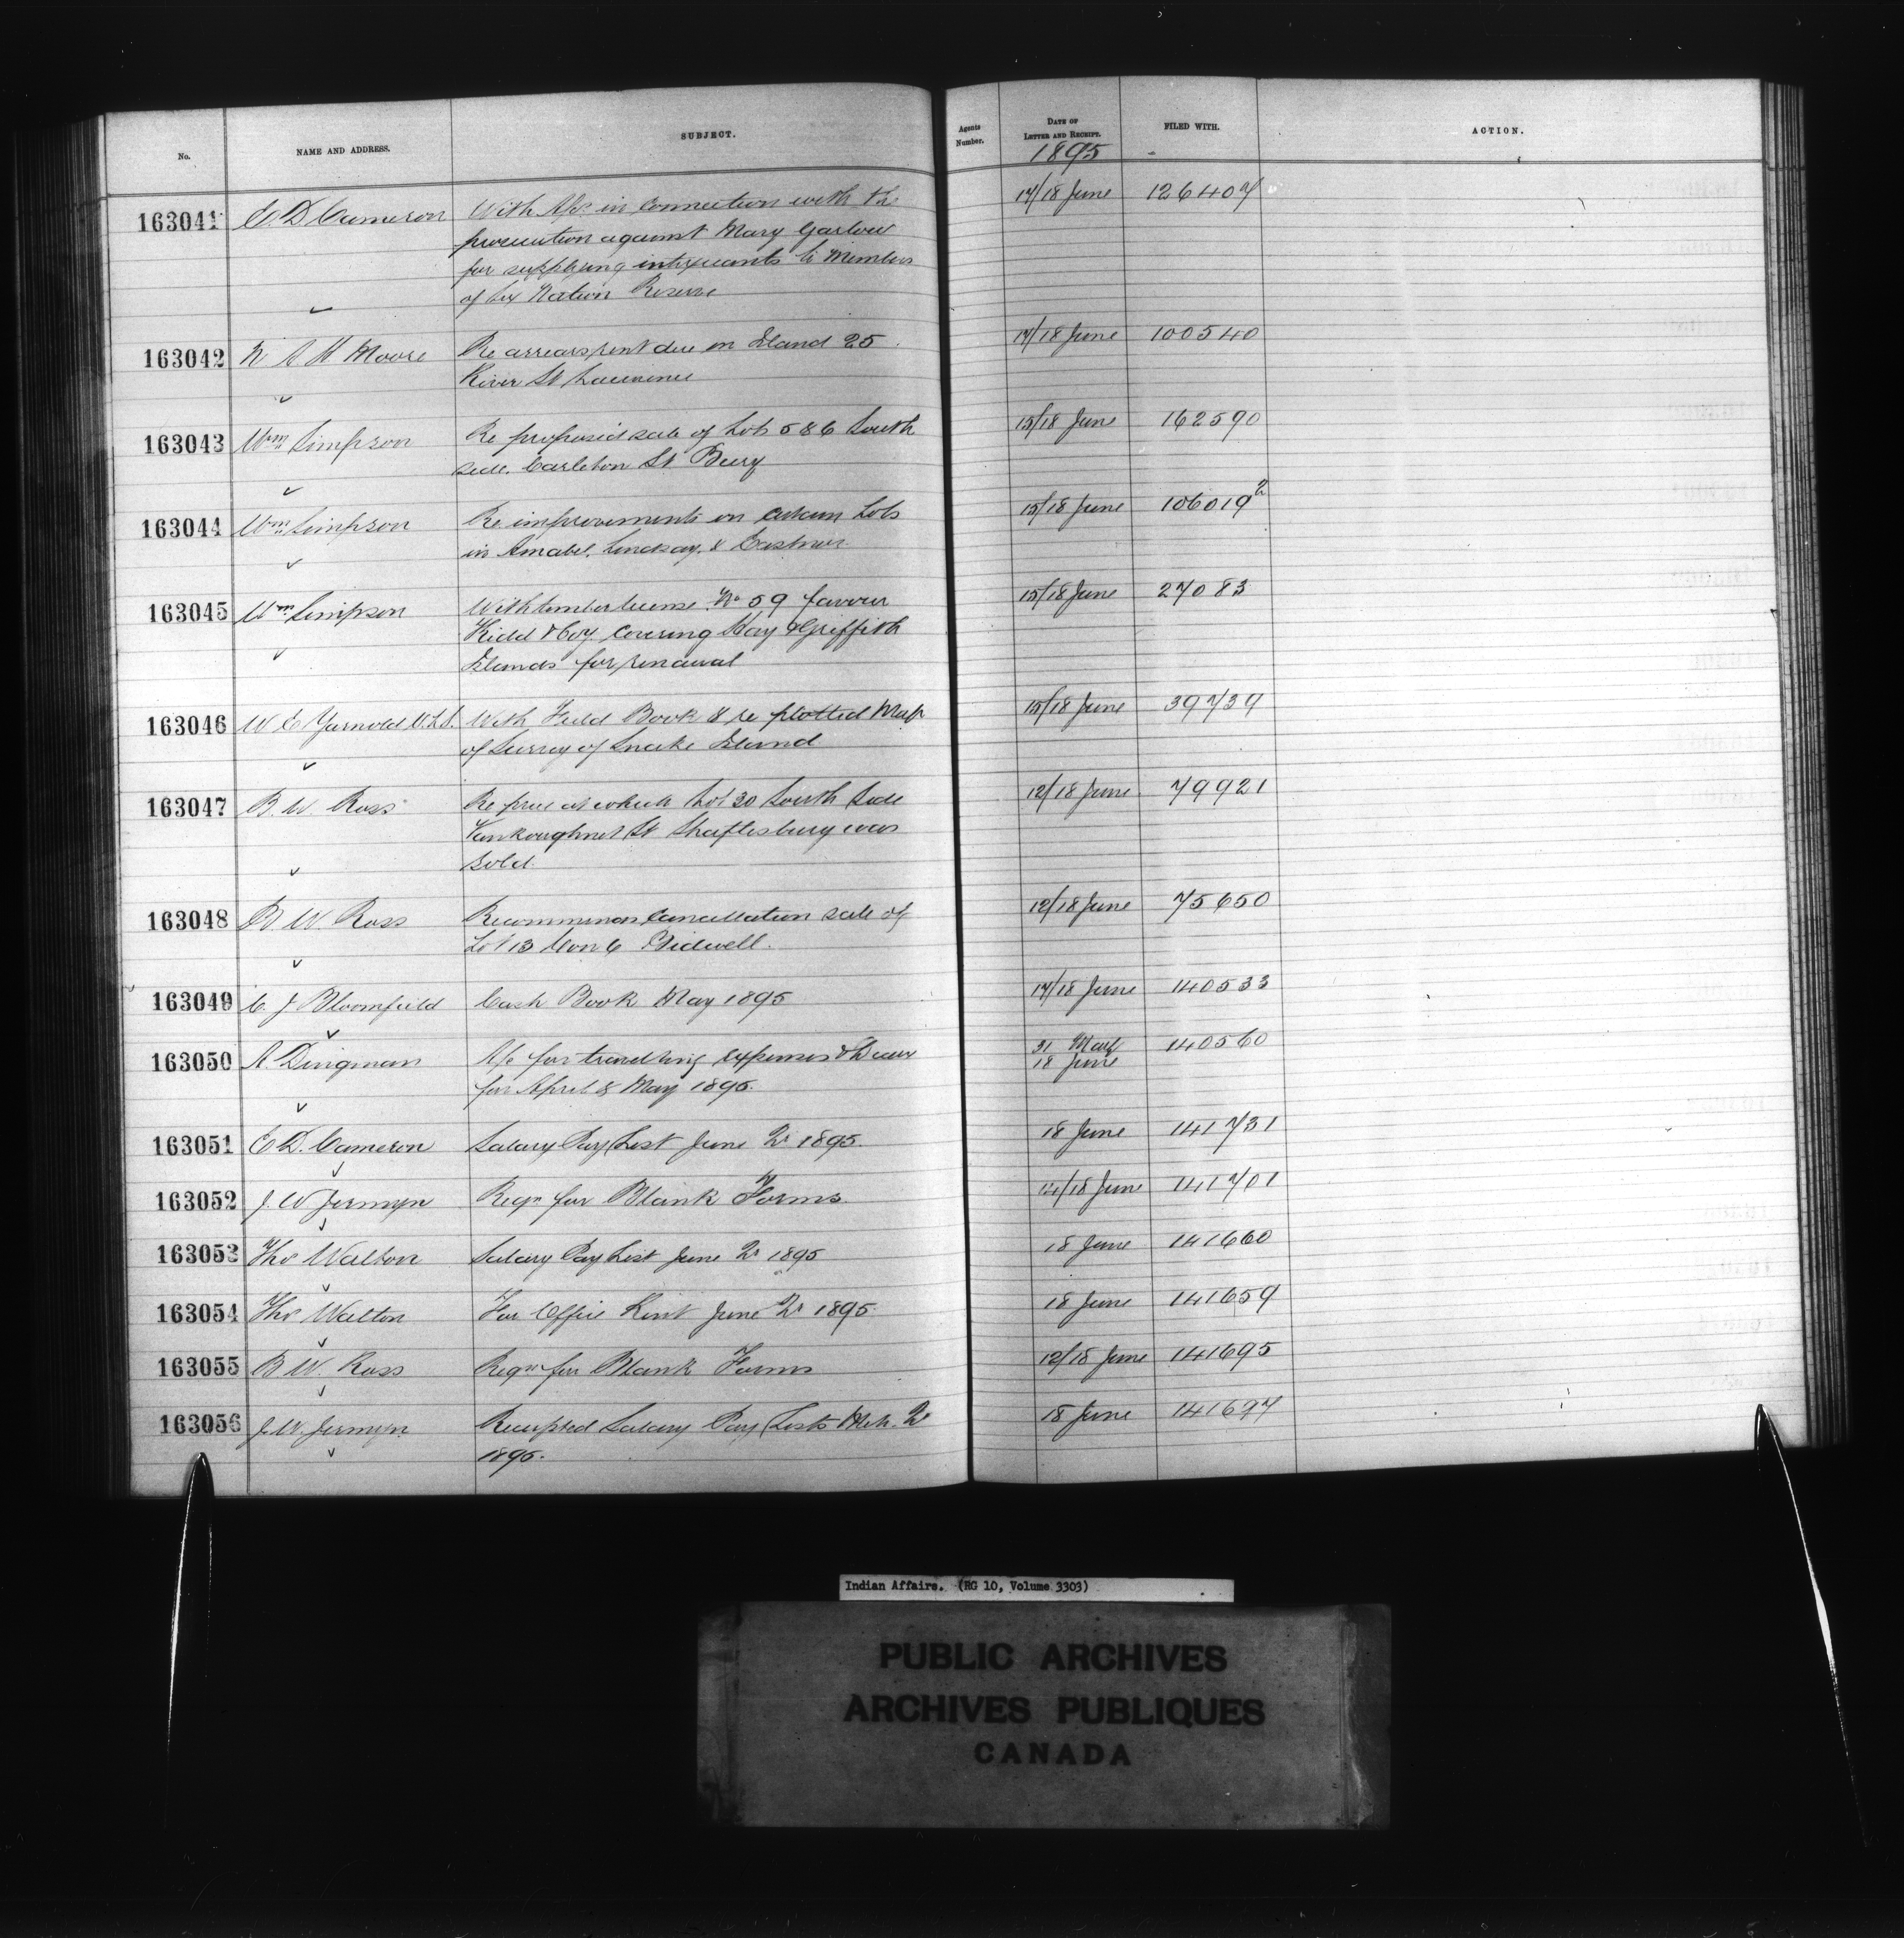 No.
NAME AND ADDRESS.
SUBJECT.
Agents Number.
DATE OF LETTER AND RECEIPT.
1895
FILED WITH.
ACTION.
163041 E. D. Cameron With A/cs in connection with the 17/18 June 126407
prosecution against Mary Garlow
for supplying intoxicants to Members
of Six Nation Reserve
163042 N A H Moore Re arrears rent due on Island 25 17/18 June 100540
River St Lawrence
163043 Wm Simpson Re proposed sale of Lots 5 & 6 South 15/18 June 162590
side. Carleton St Bury
163044 Wm Simpson Re improvements on certain Lots 15/18 June 106019
in Amabel, Lindsay, & Eastnor
163045 Wm Simpson With timber license No 59 favour 15/18 June 27083
Kidd & Coy covering Hay & Griffith
Islands for renewal
163046 W E Yarnold With Field Book & re plotted Map 15/18 June 39739
of Survey of Snake Island
163047 B. W. Ross Re price at which Lot 30 South Side 12/18 June 79921
Vankoughnet St Shaftesbury was
sold.
163048 B W. Ross Recommends cancellation sale of 12/18 June 75650
Lot 13 Con 6 Bidwell.
163049 C. J Bloomfield Cash Book May 1895 17/18 June 140533
163050 A. Dingman A/c for travelling expenses 31 May 140560
18 June
for April & May 1895.
163051 E D. Cameron Salary Pay List June Qr 1895. 18 June 141731
163052 J. W Jermyn Reqn for Blank Forms 14/18 June 141701
163053 Thos Walton Salary Pay List June Qr 1895 18 June 141660
163054 Thos Walton For Office Rent June Qr 1895. 18 June 141659
163055 B W. Ross Reqn for Blank Forms 12/18 June 141695
163056 J. W. Jermyn Receipted Salary Pay Lists Mch. Qr 18 June 141697
1895.
Indian Affairs. (RG 10, Volume 3303)
PUBLIC ARCHIVES
ARCHIVES PUBLIQUES
CANADA